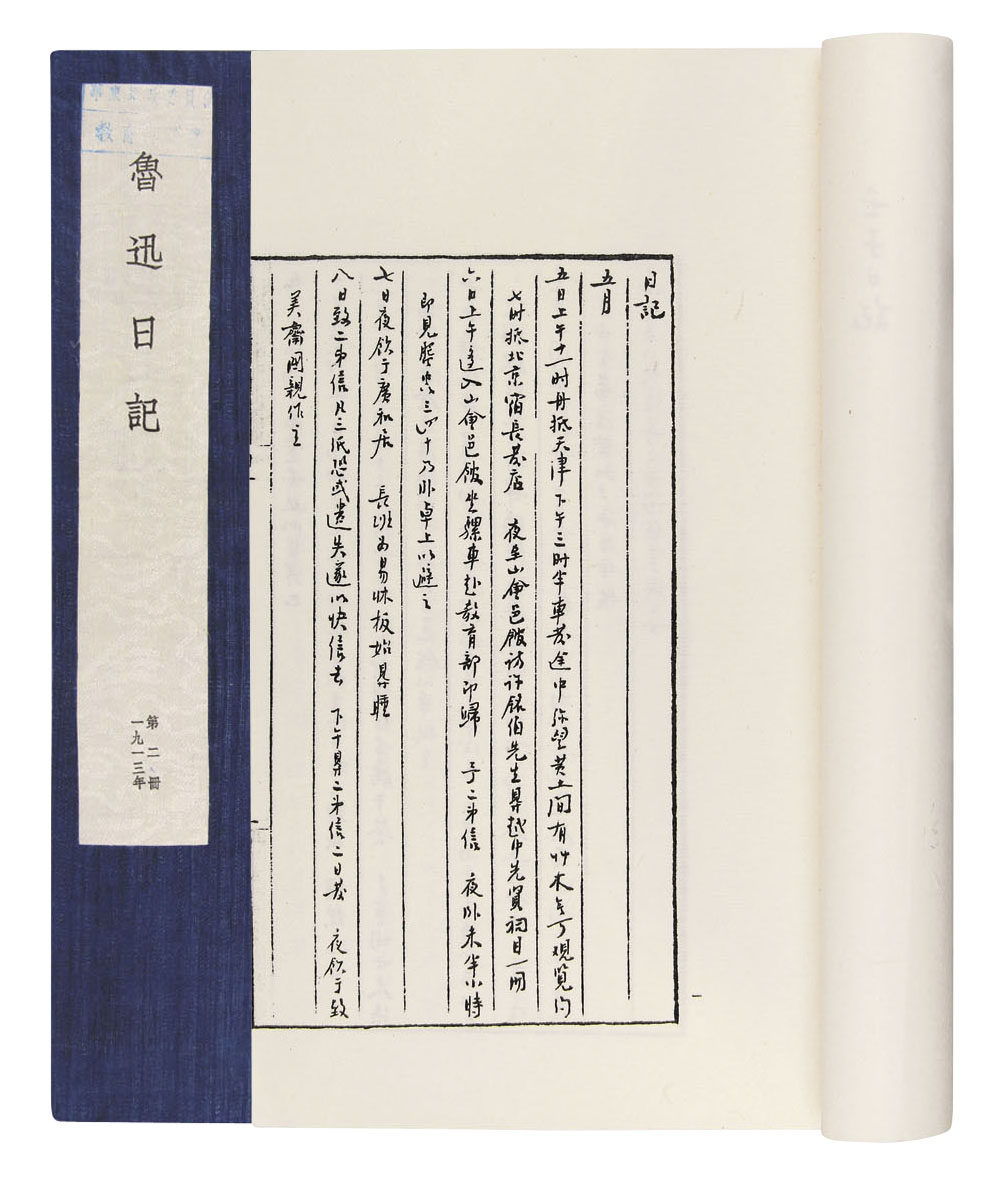 魯迅日記
第二冊
一九一三年
日記
五月
五日上午十一时舟抵天津 下午三时半車發途中弥望黄土间有艸木无可观覧約
七时抵北京宿長發店 夜至山會邑館访许銘伯先生㝵越中先賢祠目一冊
六日上午迻入山會邑館坐騾車赴教育部即歸 予二弟信 夜卧未半小時
即見蜰虫三四十乃卧卓上以避之
七日夜飲于廣和居 長班为易牀板始㝵睡
八日致二弟信凡三纸恐或遺失遂以快信去 下午㝵二弟信二日發 夜飲于致
美齋國親作主
一